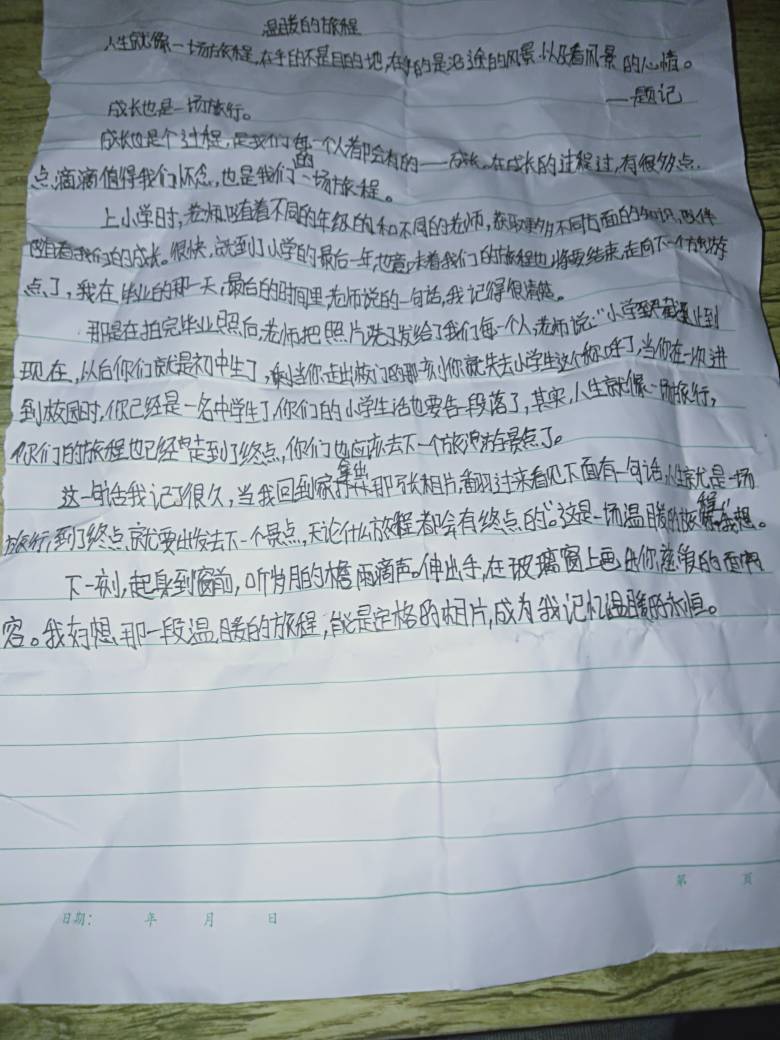 温暖的旅程
人生就像一场旅程,在乎的不是目的地,在乎的是沿途的风景,以及看风景的心情。
——题记
成长也是一场旅行。
成长也是个过程,是我们每一个人都会有的——成长。在成长的过程过,有很多点
点滴滴值得我们怀念,也是我们的一场旅程。
上小学时,老师 着不同的年级的和不同的老师,获取更多不同方面的知识, 伴
着我们的成长。很快,就到了小学的最后一年,也意味着我们的旅程也将要结束,走向下一个旅游
点了,我在毕业的那一天,最后的时间里,老师说的一句话,我记得很清楚。
那是在拍完毕业照后,老师把照片洗了发给了我们每一个人,老师说:“小学 截止到
现在,从后你们就是初中生了,当你走出校门的那一刻你就失去小学生这个称呼了,当你在一次进
到校园时,你已经是一名中学生了,你们的小学生活也要告一段落了,其实,人生就像一场旅行,
你们的旅程也已经走到了终点,你们也应该去下一个旅游景点了。
这一句话我记了很久,当我回到家拿出那张相片,翻过来看见下面有一句话,人生就是一场
旅行,到了终点,就要出发去下一个景点,无论什么旅程都会有终点的。”这是一场温暖的旅程,我想。
下一刻,起身到窗前,听岁月的檐雨滴声。伸出手,在玻璃窗上画出你 的面
容。我好想,那一段温暖的旅程,能是定格的相片,成为我记忆温暖的永恒。
第 页
日期: 年 月 日